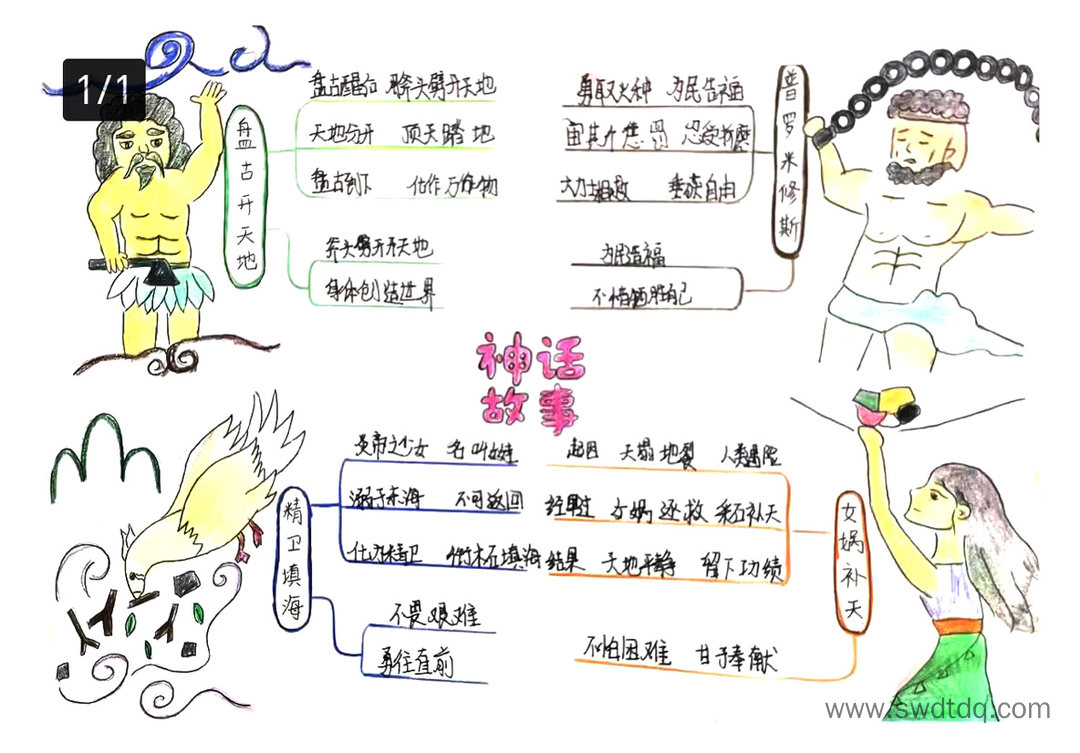 1/1
盘古开天地
盘古醒后 斧头劈开天地
天地分开 顶天踏地
盘古倒下 化作万物
斧头劈开天地
身体创造世界
普罗米修斯
勇取火种 为民造福
宙其斤惩罚 忍受折磨
大力士相救 重获自由
为民造福
不惜牺牲自己
神话
故事
精卫填海
炎帝之少女 名叫女娃
溺于东海 不可返回
化为精卫 衔木石填海
不畏艰难
勇往直前
女娲补天
起因 天塌地裂 人类冒险
经过 女娲拯救 采石补天
结果 天地平静 留下功绩
不怕困难 甘于奉献
www.swdtdq.com